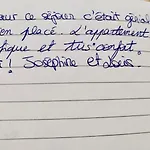 our ce séjour c'était génial
en placé. L'appartement
fique et très confort.
! Joséphine et Louis.